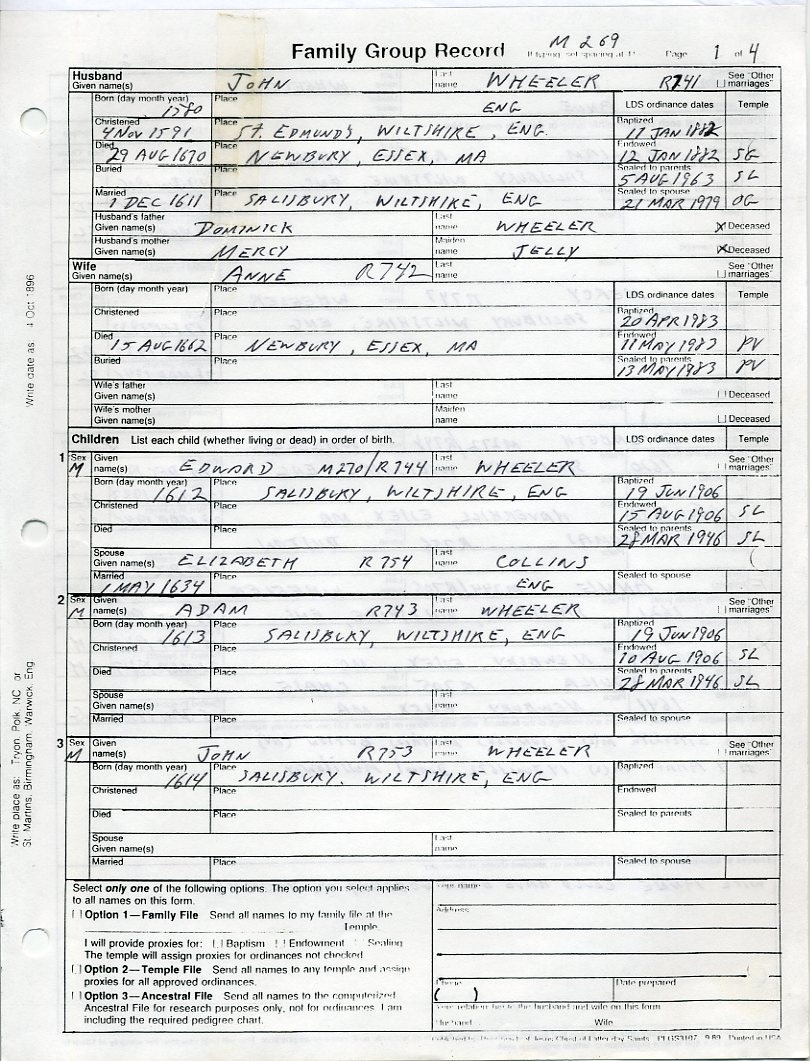 Family Group Record M 269 Page 1 of 4
Husband
Given name(s) JOHN Last name WHEELER R741 See "Other marriages"
Born (day month year) 1580 Place ENG LDS ordinance dates Temple
Christened 4 NOV 1591 Place ST. EDMUND'S, WILTSHIRE, ENG. Baptized 17 JAN 1882
Died 29 AUG 1670 Place NEWBURY, ESSEX, MA Endowed 12 JAN 1882 SG
Buried Place Sealed to parents 5 AUG 1963 SL
Married 1 DEC 1611 Place SALISBURY, WILTSHIRE, ENG Sealed to spouse 21 MAR 1979 OG
Husband's father Given name(s) DOMINICK Last name WHEELER X Deceased
Husband's mother Given name(s) MERCY Maiden name JELLY X Deceased
Wife
Given name(s) ANNE R742 Last name See "Other marriages"
Born (day month year) Place LDS ordinance dates Temple
Christened Place Baptized 20 APR 1983
Died 15 AUG 1662 Place NEWBURY, ESSEX, MA Endowed 11 MAY 1983 PV
Buried Place Sealed to parents 13 MAY 1983 PV
Wife's father Given name(s) Last name Deceased
Wife's mother Given name(s) Maiden name Deceased
Children List each child (whether living or dead) in order of birth. LDS ordinance dates Temple
1 Sex M Given name(s) EDWARD M270/R744 Last name WHEELER See "Other marriages"
Born (day month year) 1612 Place SALISBURY, WILTSHIRE, ENG Baptized 19 JUN 1906
Christened Place Endowed 15 AUG 1906 SL
Died Place Sealed to parents 28 MAR 1946 SL
Spouse Given name(s) ELIZABETH R754 Last name COLLINS
Married 1 MAY 1634 Place ENG Sealed to spouse
2 Sex M Given name(s) ADAM R743 Last name WHEELER See "Other marriages"
Born (day month year) 1613 Place SALISBURY, WILTSHIRE, ENG Baptized 19 JUN 1906
Christened Place Endowed 10 AUG 1906 SL
Died Place Sealed to parents 28 MAR 1946 SL
Spouse Given name(s) Last name
Married Place Sealed to spouse
3 Sex M Given name(s) JOHN R753 Last name WHEELER See "Other marriages"
Born (day month year) 1614 Place SALISBURY. WILTSHIRE, ENG Baptized
Christened Place Endowed
Died Place Sealed to parents
Spouse Given name(s) Last name
Married Place Sealed to spouse
Select only one of the following options. The option you select applies
to all names on this form.
Option 1—Family File Send all names to my family file at the
Temple.
I will provide proxies for: Baptism Endowment Sealing
The temple will assign proxies for ordinances not checked.
Option 2—Temple File Send all names to any temple and assign
proxies for all approved ordinances.
Option 3—Ancestral File Send all names to the computerized
Ancestral File for research purposes only, not for ordinances. I am
including the required pedigree chart.
Your name
Address
Phone
( )
Date prepared
Your relationship to the husband and wife on this form
Husband Wife
Published by The Church of Jesus Christ of Latter-day Saints PFGS3107 9/89 Printed in USA
Write date as: 4 Oct 1896
Write place as: Tryon, Polk, NC or
St. Martins, Birmingham, Warwick, Eng